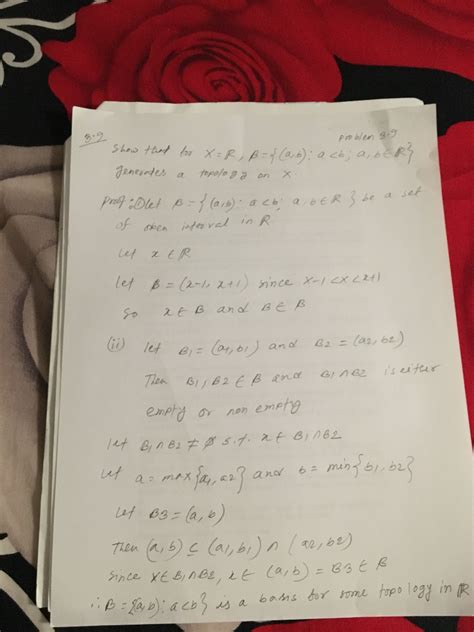 3.9 Problem 3.9
Show that for X = R, B = {(a,b): a<b; a, b ∈ R}
generates a topology on X.
proof: (i) Let B = {(a,b): a<b; a, b ∈ R} be a set
of open interval in R.
Let x ∈ R
let B = (x-1, x+1) since x-1 < x < x+1
So x ∈ B and B ∈ B
(ii) let B1 = (a1, b1) and B2 = (a2, b2)
Then B1, B2 ∈ B and B1 ∩ B2 is either
empty or non empty
let B1 ∩ B2 ≠ ∅ s.t. x ∈ B1 ∩ B2
Let a = max{a1, a2} and b = min{b1, b2}
Let B3 = (a, b)
Then (a, b) ⊆ (a1, b1) ∩ (a2, b2)
Since x ∈ B1 ∩ B2, x ∈ (a, b) = B3 ∈ B
∴ B = {(a,b): a<b} is a basis for some topology in R